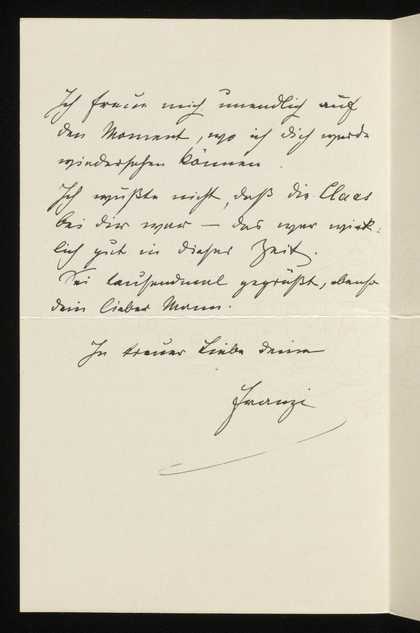 Ich freue mich unendlich auf
den Moment, wo ich dich werde
wiedersehen können.
Ich wußte nicht, daß die Claas
bei dir war – das war wirk-
lich gut in dieser Zeit.
Sei tausendmal gegrüßt, ebenso
dein lieber Mann.
In treuer Liebe deine
Franzi